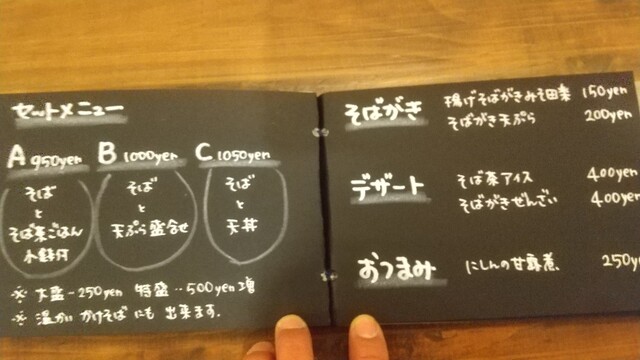 セットメニュー
A 950yen
そば
と
そば茶ごはん
小鉢付
B 1000yen
そば
と
天ぷら盛合せ
C 1050yen
そば
と
天丼
※ 大盛‥250yen 特盛‥500yen増
※ 温かいかけそばにも出来ます.
そばがき
揚げそばがきみそ田楽 150yen
そばがき天ぷら 200yen
デザート
そば茶アイス 400yen
そばがきぜんざい 400yen
おつまみ
にしんの甘露煮 250y